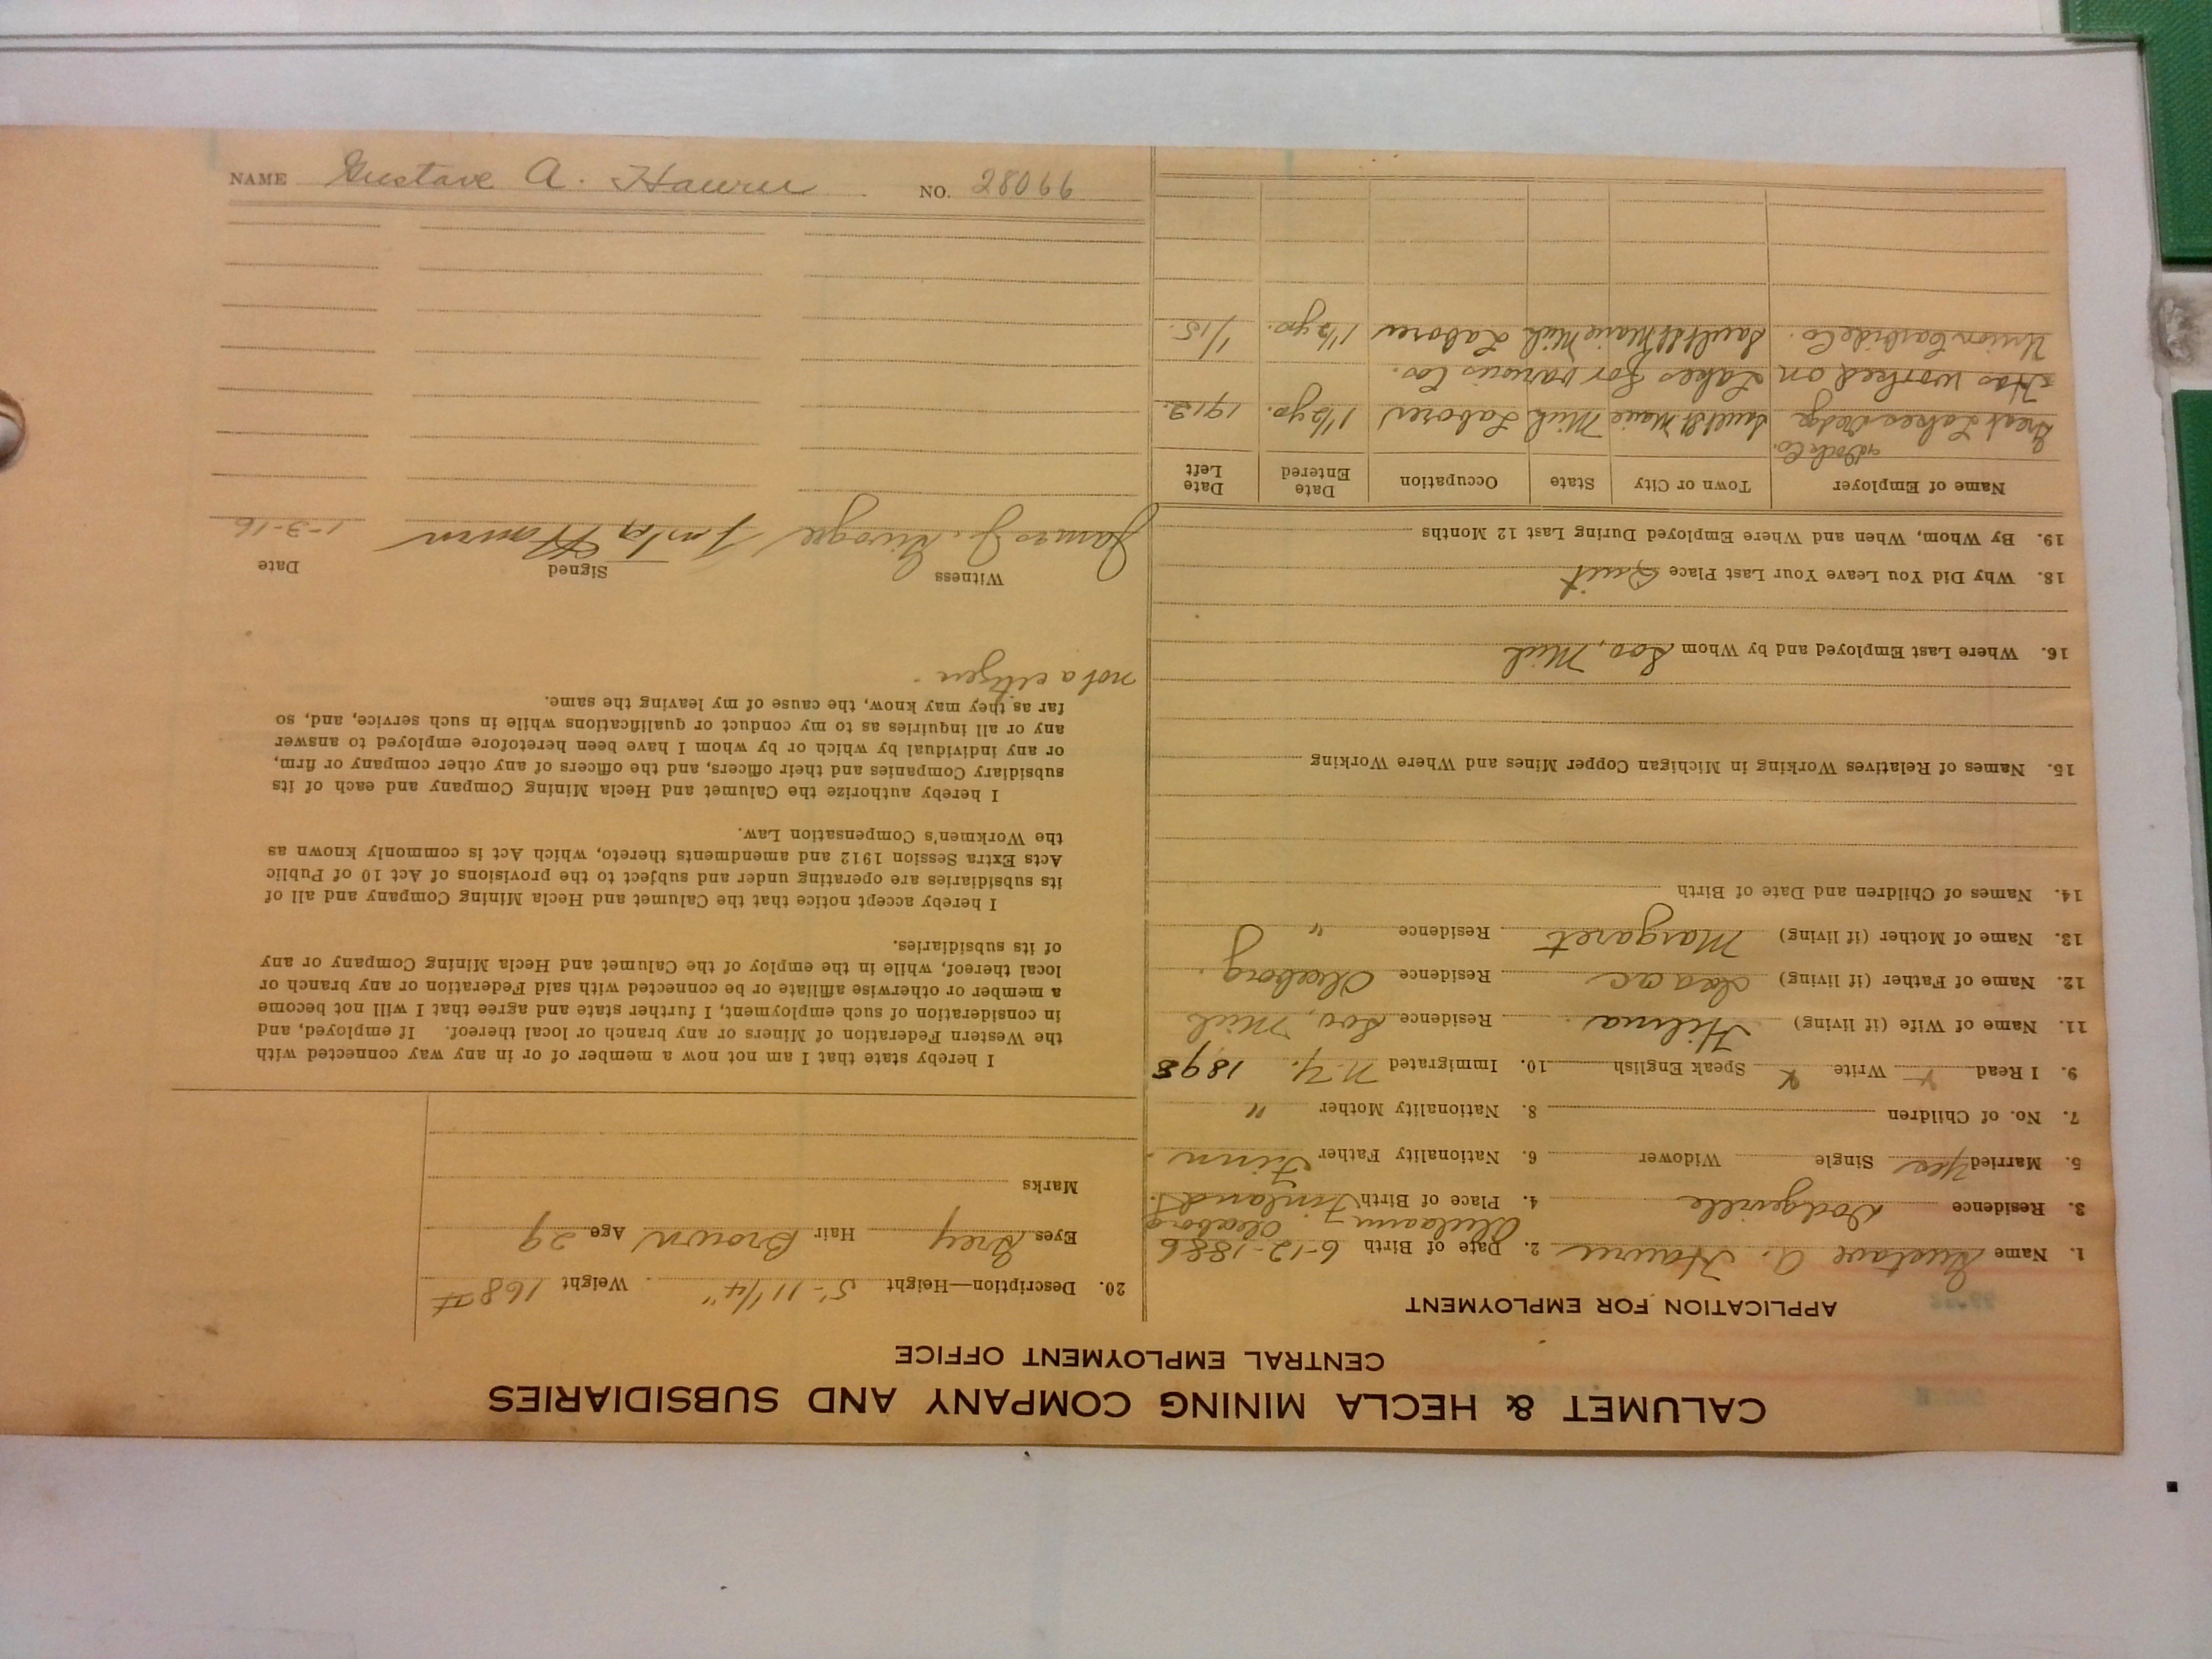 CALUMET & HECLA MINING COMPANY AND SUBSIDIARIES
CENTRAL EMPLOYMENT OFFICE
APPLICATION FOR EMPLOYMENT
1. Name Gustave A. Hawru 2. Date of Birth 6-12-1886
Oleaborg
3. Residence Dodgeville 4. Place of Birth Finland
5. Married Yes Single Widower 6. Nationality Father Finn
7. No. of Children 8. Nationality Mother "
9. I Read x Write x Speak English 10. Immigrated N.Y. 1898
11. Name of Wife (if living) Hilma Residence Soo, Mich
12. Name of Father (if living) Isaac Residence Oleaborg
13. Name of Mother (if living) Margaret Residence "
14. Names of Children and Date of Birth
15. Names of Relatives Working in Michigan Copper Mines and Where Working
16. Where Last Employed and by Whom Soo, Mich
18. Why Did You Leave Your Last Place Quit
19. By Whom, When and Where Employed During Last 12 Months
Name of Employer Town or City State Occupation Date Entered Date Left
Great Lakes Dredge & Dock Co. Sault St Marie Mich Laborer 1 1/2 yr. 1913
Has worked on Lakes for various Cos.
Union Carbide Co. Sault St Marie Mich Laborer 1 1/2 yr. 1/15.
20. Description—Height 5'-11 1/4" Weight 168 #
Eyes Grey Hair Brown Age 29
Marks
I hereby state that I am not now a member of or in any way connected with
the Western Federation of Miners or any branch or local thereof. If employed, and
in consideration of such employment, I further state and agree that I will not become
a member or otherwise affiliate or be connected with said Federation or any branch or
local thereof, while in the employ of the Calumet and Hecla Mining Company or any
of its subsidiaries.
I hereby accept notice that the Calumet and Hecla Mining Company and all of
its subsidiaries are operating under and subject to the provisions of Act 10 of Public
Acts Extra Session 1912 and amendments thereto, which Act is commonly known as
the Workmen's Compensation Law.
I hereby authorize the Calumet and Hecla Mining Company and each of its
subsidiary Companies and their officers, and the officers of any other company or firm,
or any individual by which or by whom I have been heretofore employed to answer
any or all inquiries as to my conduct or qualifications while in such service, and, so
far as they may know, the cause of my leaving the same.
not a citizen.
Witness Signed Date
James J. 1-3-16
NAME Gustave A. Hawru NO. 28066